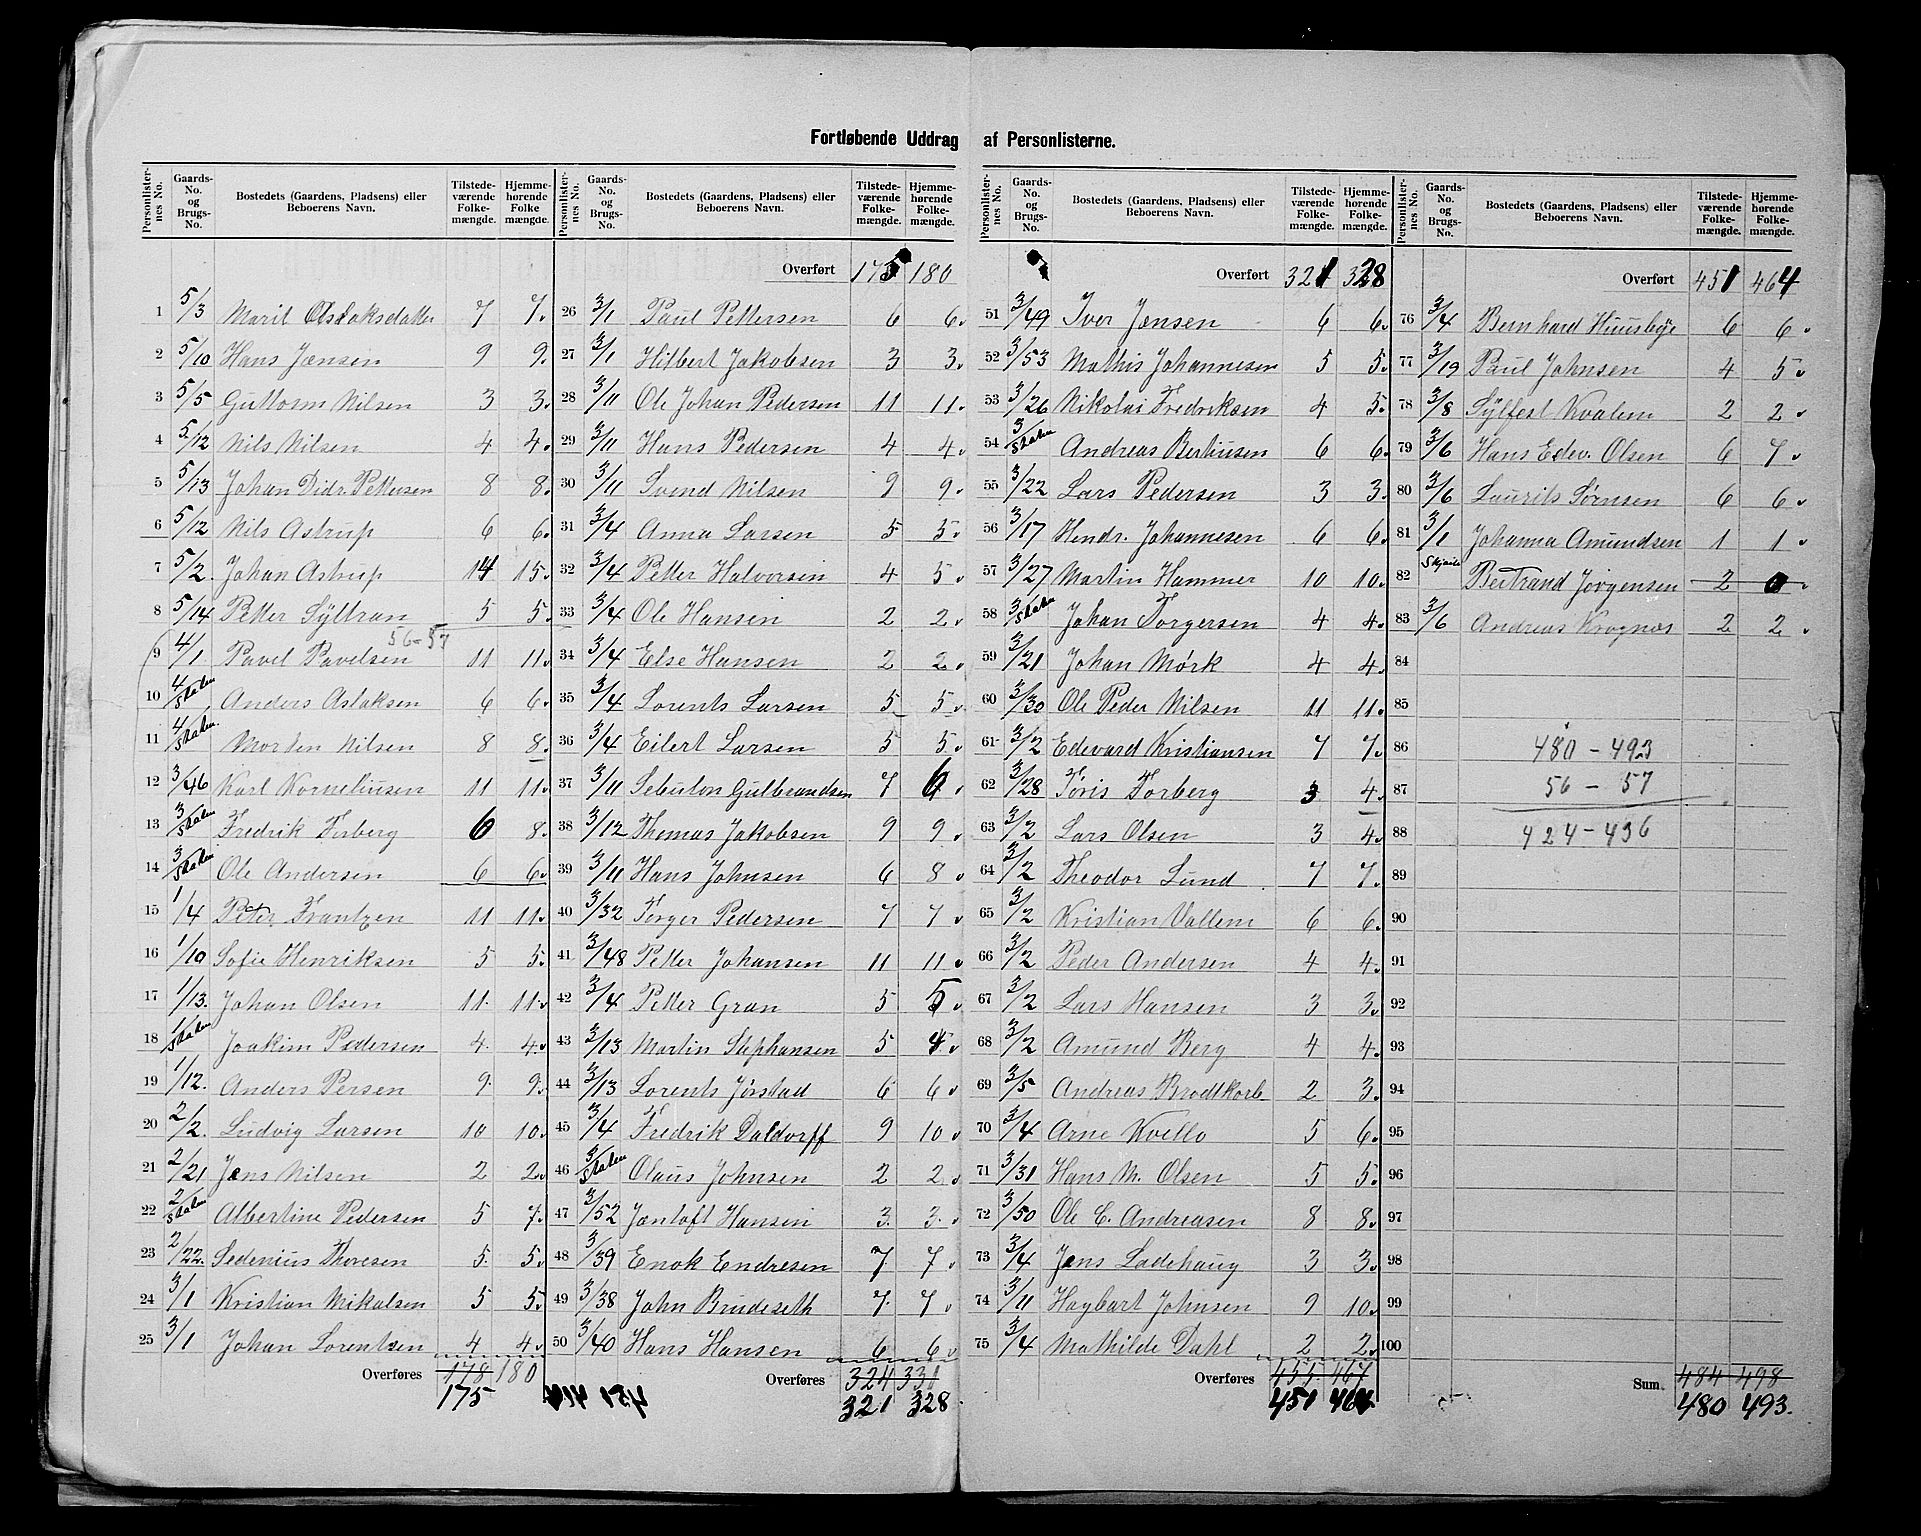 Fortløbende Uddrag af Personlisterne.
Personlisternes No. Gaards-No. og Brugs-No. Bostedets (Gaardens, Pladsens) eller Beboerens Navn. Tilstedeværende Folkemængde. Hjemmehørende Folkemængde.
1 5/3 Marit Aslaksdatter 7 7
2 5/10 Hans Jensen 9 9
3 5/5 Guttorm Nilsen 3 3
4 5/12 Nils Nilsen 4 4
5 5/13 Johan Didr. Pettersen 8 8
6 5/12 Nils Astrup 6 6
7 5/2 Johan Astrup 14 15
8 5/14 Petter Syltran 5 5
56-57
9 4/1 Pavel Pavelsen 11 11
10 4/Staten Anders Aslaksen 6 6
11 4/Staten Morten Nilsen 8 8
12 3/46 Karl Korneliusen 11 11
13 3/Staten Fredrik Forberg 6 8
14 3/Staten Ole Andersen 6 6
15 1/4 Peter Frantzen 11 11
16 1/10 Sofie Henriksen 5 5
17 1/13 Johan Olsen 11 11
18 1/Staten Joakim Pedersen 4 4
19 1/12 Anders Persen 9 9
20 2/2 Ludvig Larsen 10 10
21 2/21 Jens Nilsen 2 2
22 2/Staten Albertine Pedersen 5 7
23 2/22 Sedenius Thoresen 5 5
24 3/1 Kristian Mikalsen 5 5
25 3/1 Johan Lorentsen 4 4
Overføres 178 180
175
Personlisternes No. Gaards-No. og Brugs-No. Bostedets (Gaardens, Pladsens) eller Beboerens Navn. Tilstedeværende Folkemængde. Hjemmehørende Folkemængde.
Overført 175 180
26 3/1 Paul Pettersen 6 6
27 3/1 Hilbert Jakobsen 3 3
28 3/11 Ole Johan Pedersen 11 11
29 3/11 Hans Pedersen 4 4
30 3/11 Svend Nilsen 9 9
31 3/4 Anna Larsen 5 5
32 3/4 Petter Halvorsen 4 5
33 3/4 Ole Hansen 2 2
34 3/4 Else Hansen 2 2
35 3/4 Lorents Larsen 5 5
36 3/4 Eilert Larsen 5 5
37 3/11 Sebulon Gulbrandsen 7 6
38 3/12 Thomas Jakobsen 9 9
39 3/11 Hans Johnsen 6 8
40 3/32 Torger Pedersen 7 7
41 3/48 Petter Johansen 11 11
42 3/4 Petter Gran 5 5
43 3/13 Martin Stephansen 5 4
44 3/13 Lorents Jørstad 6 6
45 3/4 Fredrik Daldorff 9 10
46 3/Staten Olaus Johnsen 2 2
47 3/52 Jentoft Hansen 3 3
48 3/39 Enok Endresen 7 7
49 3/38 John Brudeseth 7 7
50 3/40 Hans Hansen 6 6
Overføres 324 331
321 328
Personlisternes No. Gaards-No. og Brugs-No. Bostedets (Gaardens, Pladsens) eller Beboerens Navn. Tilstedeværende Folkemængde. Hjemmehørende Folkemængde.
Overført 321 328
51 3/49 Iver Jensen 6 6
52 3/53 Mathis Johannesen 5 5
53 3/26 Nikolai Fredriksen 4 5
54 3/Staten Andreas Berthusen 6 6
55 3/22 Lars Pedersen 3 3
56 3/17 Hendr. Johannesen 6 6
57 3/27 Martin Hammer 10 10
58 3/Staten Johan Torgersen 4 4
59 3/21 Johan Mørk 4 4
60 3/30 Ole Peder Nilsen 11 11
61 3/2 Edevard Kristiansen 7 7
62 3/28 Toris Forberg 3 4
63 3/2 Lars Olsen 3 4
64 3/2 Theodor Lund 7 7
65 3/2 Kristian Vallem 6 6
66 3/2 Peder Andersen 4 4
67 3/2 Lars Hansen 3 3
68 3/2 Amund Berg 4 4
69 3/5 Andreas Brodtkorb 2 3
70 3/4 Arne Kvello 5 6
71 3/31 Hans M. Olsen 5 5
72 3/50 Ole C. Andreasen 8 8
73 3/4 Jens Ladehaug 3 3
74 3/11 Hagbart Johnsen 9 10
75 3/4 Mathilde Dahl 2 2
Overføres 455 467
451 464
Personlisternes No. Gaards-No. og Brugs-No. Bostedets (Gaardens, Pladsens) eller Beboerens Navn. Tilstedeværende Folkemængde. Hjemmehørende Folkemængde.
Overført 451 464
76 3/4 Bernhard Huusbye 6 6
77 3/19 Paul Johnsen 4 5
78 3/8 Sylfest Kvalem 2 2
79 3/6 Hans Edev. Olsen 6 7
80 3/6 Laurits Sørnsen 6 6
81 3/1 Johanna Amundsen 1 1
82 Bertrand Jørgensen 2 0
83 3/6 Andreas Krognes 2 2
84
85
86 480-493
87 56-57
88 424-436
89
90
91
92
93
94
95
96
97
98
99
100
Sum 484 498
480 493.